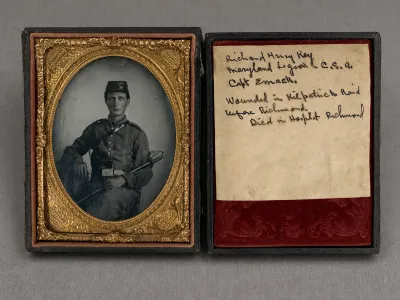 Richard Henry Key
Maryland Legion C.S.A.
Capt Emack.
Wounded in Kilpatricks Raid
before Richmond
Died in Hosptl Richmond